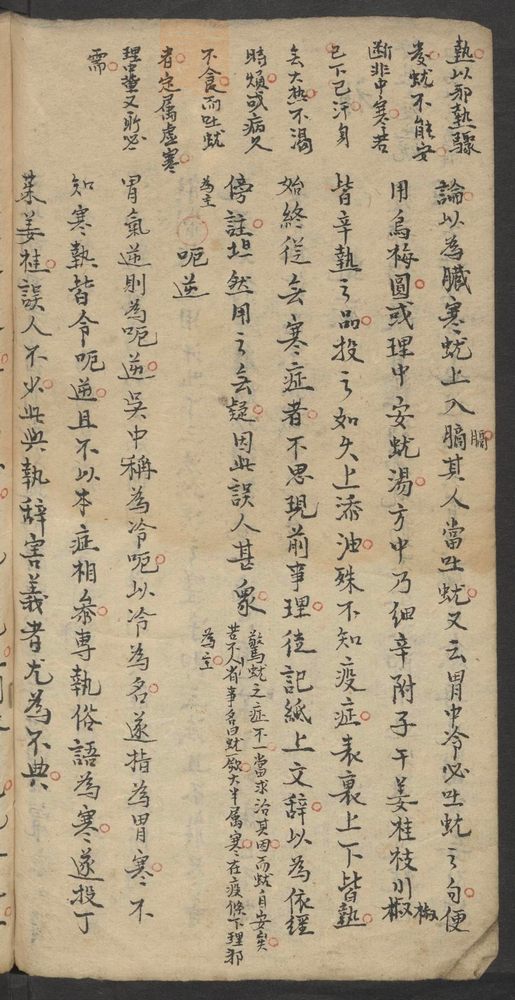 熱以邪熱騷
蚘不能安
斷非中寒者
已下已汗身
去大热不渴
時煩或病久
不食而吐蚘
者定属虛寒
理中蚤又所必
需
論以為臟寒蚘上入膈其人當吐蚘又云胃中冷必吐蚘之句便
膈
用烏梅圓或理中安蚘湯方中乃細辛附子干姜桂枝川椒
椒
皆辛熱之品投之如火上添油殊不知疫症表裏上下皆熱
始終從無寒症者不思現前事理徒記紙上文辞以為依經
傍註坦然用之無疑因此誤人甚衆
驚蚘之症不一當求治其因而蚘自安矣
苦不人省事名曰蚘厥大半属寒在疫條下理邪
為主
為主
呃逆
胃氣逆則為呃逆吳中稱為冷呃以冷為名遂指為胃寒不
知寒執皆令呃逆且不以本症相參專執俗語為寒遂投丁
茱姜桂誤人不少此與執辞害義者尤為不典